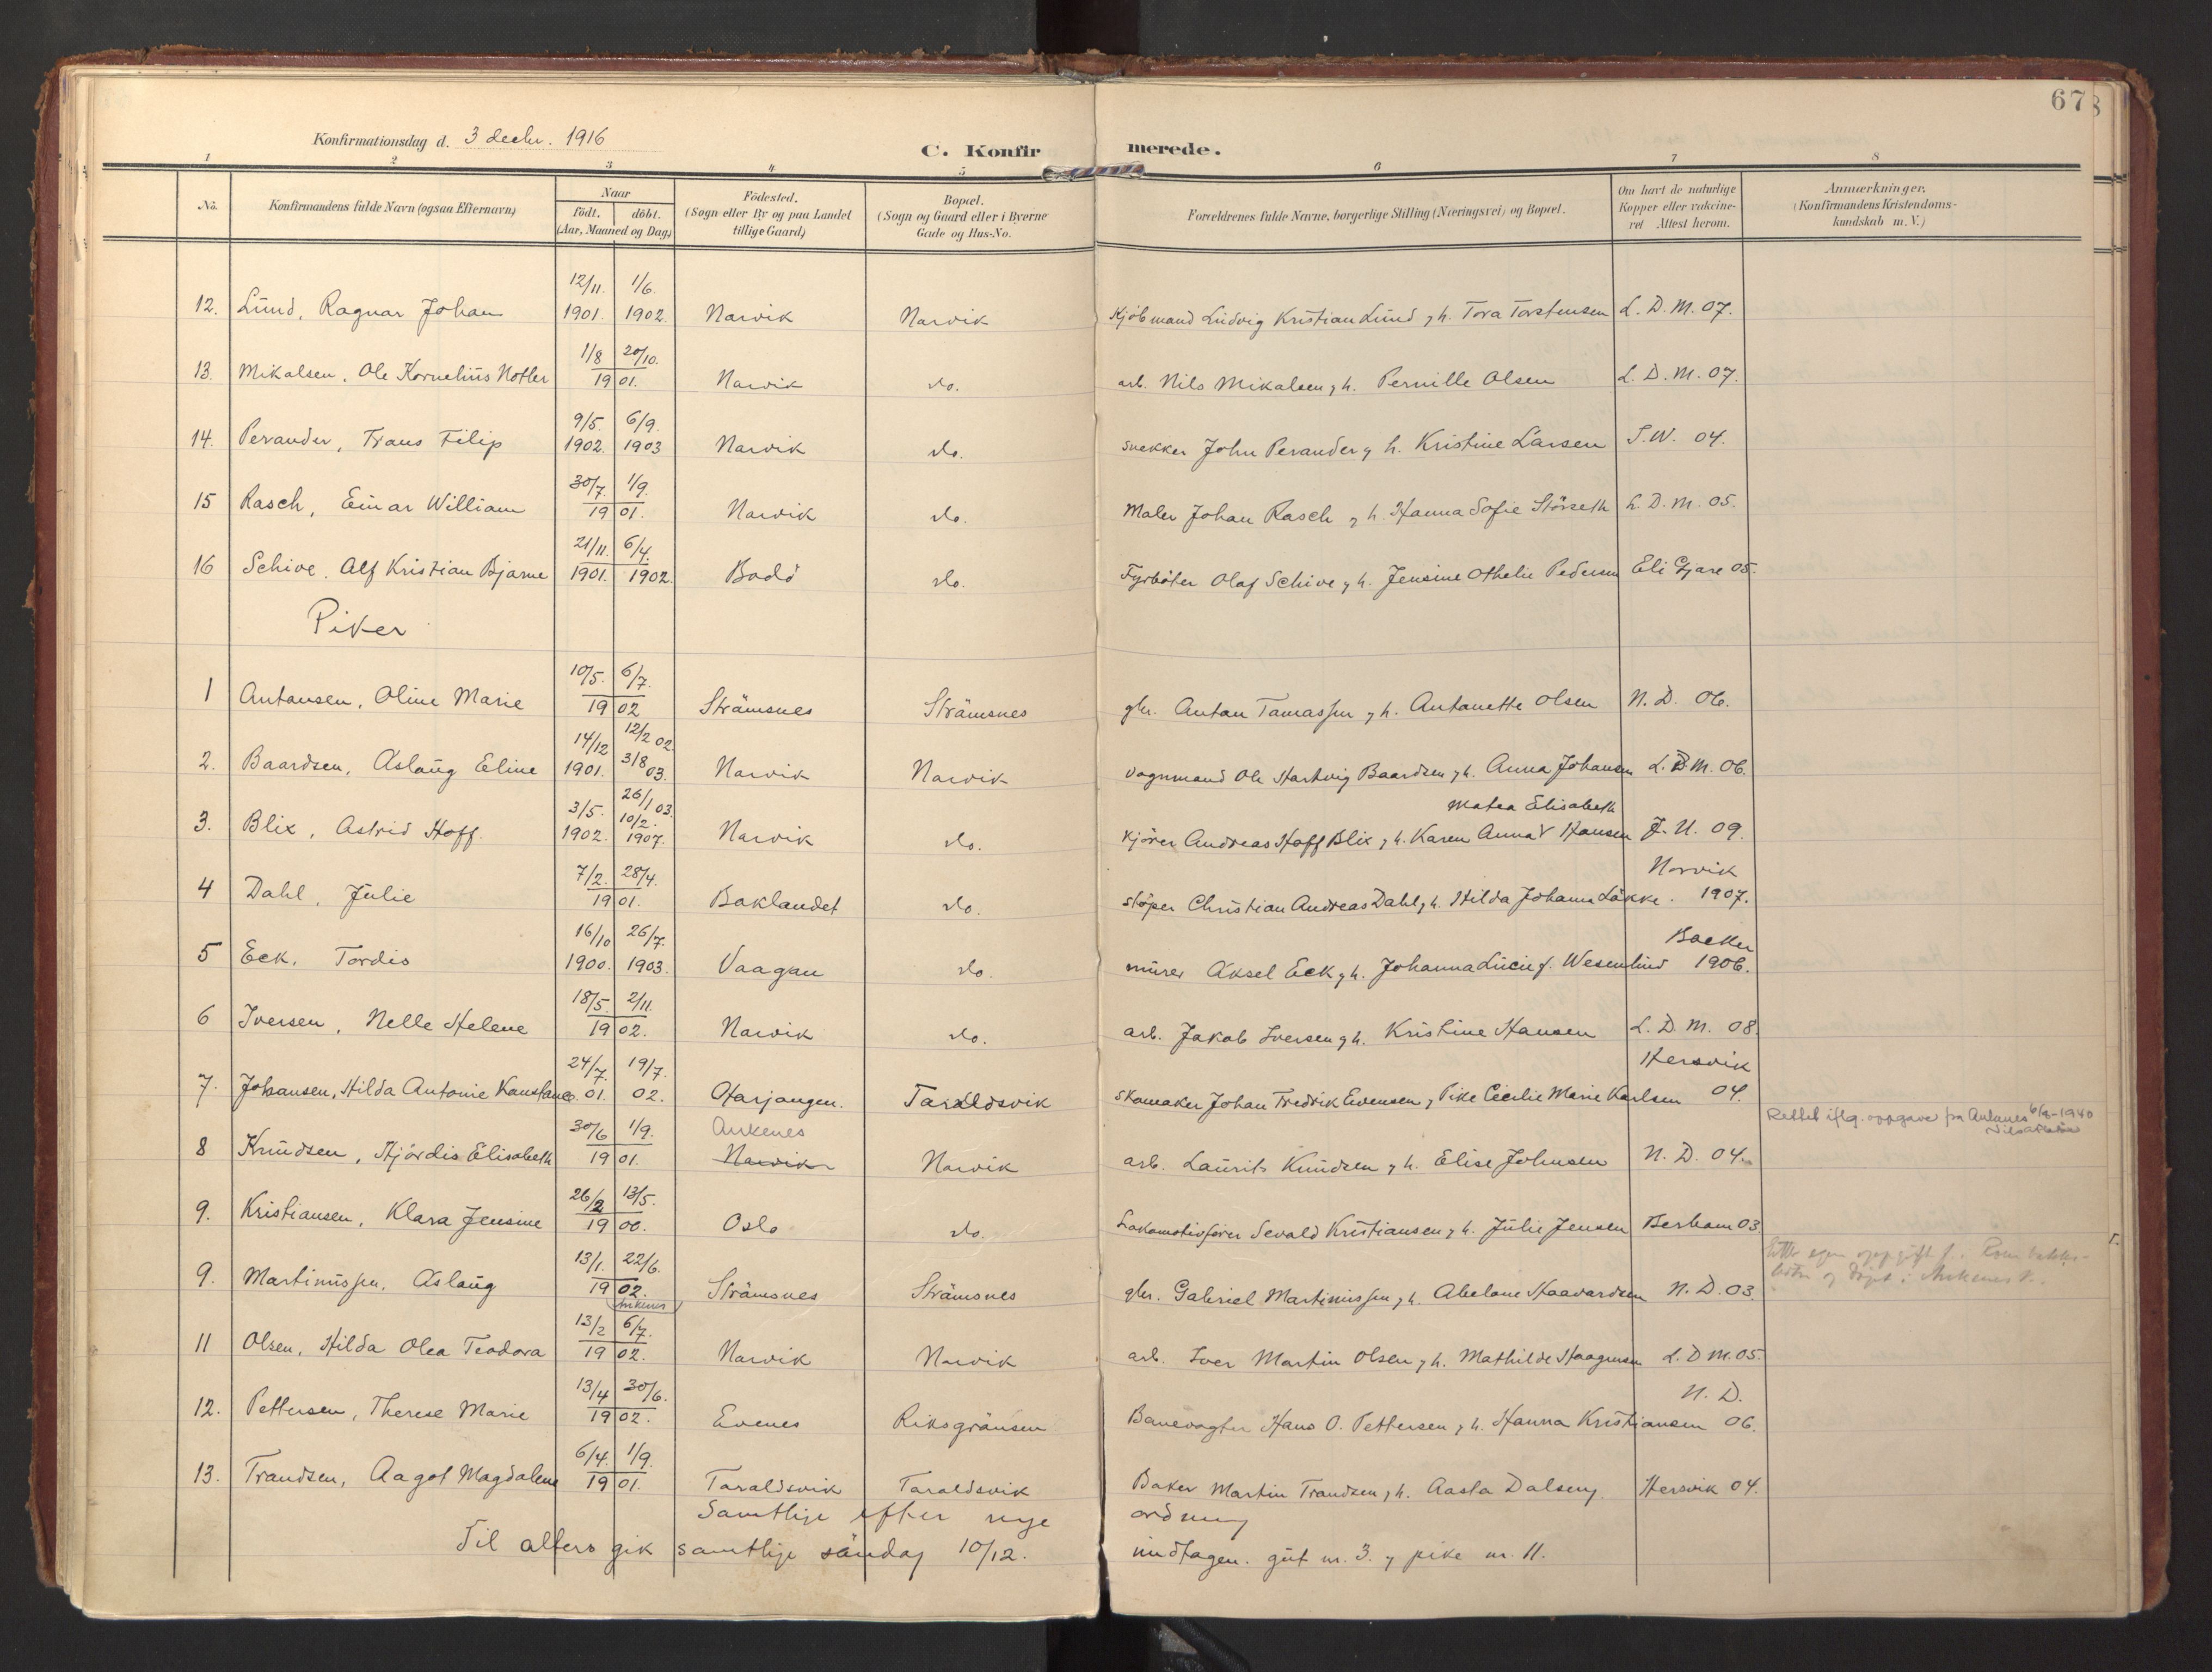 67
8
Konfirmationsdag d. 3 decbr. 1916
C. Konfirmerede.
1 2 3 4 5 6 7 8
No. Konfirmandens fulde Navn (ogsaa Efternavn) Naar født. døbt. (Aar, Maaned og Dag) Fødested. (Sogn eller By og paa Landet tillige Gaard) Bopæl. (Sogn og Gaard eller i Byerne Gade og Hus-No. Forældrenes fulde Navne, borgerlige Stilling (Næringsvei) og Bopæl. Om havt de naturlige Kopper eller vakcineret Attest herom. Anmærkninger. (Konfirmandens Kristendomskundskab m. V.)
12. Lund, Ragnar Johan 12/11. 1901. 1/6. 1902. Narvik Narvik Kjøbmand Ludvig Kristian Lund, h. Tora Torstensen L. D. M. 07.
13. Mikalsen, Ole Kornelius Notler 1/8 20/10. 1901. Narvik do. arb. Nils Mikalsen, h. Pernille Olsen L. D. M. 07.
14. Perander, Frans Filip 9/5. 1902. 6/9. 1903 Narvik do. snekker John Perander, h. Kristine Larsen S. W. 04.
15 Rasch, Einar William 30/7. 1/9. 1901. Narvik do. Maler Johan Rasch, h. Hanna Sofie Störseth L. D. M. 05.
16 Schive, Alf Kristian Bjarne 21/11. 1901. 6/4. 1902. Bodö do. Fyrböter Olaf Schive, h. Jensine Othelie Pedersen Eli Gjare 05.
Piker
1 Antonsen, Oline Marie 10/5. 6/7. 1902 Strömsnes Strömsnes gbr. Anton Tomassen, h. Antonette Olsen N. D. 06.
2. Baardsen, Aslaug Eline 14/12 1901. 12/2 02. 3/8 03. Narvik Narvik vognmand Ole Hartvig Baardsen, h. Anna Johansen L. D. M. 06.
3. Blix, Astrid Hoff. 3/5. 1902. 26/1 03. 10/2. 1907. Narvik do. Kjörer Andreas Hoff Blix, h. Karen Anna V Hansen Matea Elisabeth J. U. 09.
4 Dahl, Julie 7/2. 28/4. 1901. Baklandet do. stöper Christian Andreas Dahl, h. Hilda Johanna Lökke. Narvik 1907.
5 Eck, Tordis 16/10 1900. 26/7. 1903. Vaagan do. murer Aksel Eck, h. Johanna Lucie f. Wesenlund Backer 1906.
6 Iversen, Nelle Helene 18/5. 2/11. 1902. Narvik do. arb. Jakob Iversen, h. Kristine Hansen L. D. M. 08.
7. Johansen, Hilda Antonie Konstance 24/7. 01. 19/7. 02. Ofarjangen. Taraldsvik Skomaker Johan Fredrik Evensen, Pike Cecilie Marie Karlsen Hersvik 04.
8 Knudsen, Hjördis Elisabeth 30/6 1/9. 1901. Ankenes Narvik Narvik arb. Laurits Knudsen, h. Elise Johnsen N. D. 04. Rettet iflg. oppgave fra Ankenes 6/9-1940
9. Kristiansen, Klara Jensine 26/2 13/5. 1900. Oslo do. Lokomotivförer Sevald Kristiansen, h. Julie Jensen Berham 03
9. Martinussen, Aslaug 13/1. 22/6. 1902. Ankenes Strömsnes Strömsnes gbr. Gabriel Martinussen, h. Abelone Haavardsen N. D. 03.
11 Olsen, Hilda Olea Teodora 13/2 6/7. 1902. Narvik Narvik arb. Iver Martin Olsen, h. Mathilde Haagensen L. D M. 05.
12. Pettersen, Therese Marie 13/4 30/6. 1902. Evenes Riksgränsen Banevagter Hans O. Pettersen, h. Hanna Kristiansen N. D. 06.
13. Trandsen, Aagot Magdalene 6/4. 1/9. 1901. Taraldsvik Taraldsvik Baker Martin Trandsen, h. Aasta Dalseng. Hersvik 04.
Samtlige efter nye ordning
Til alters gik samtlige söndag 10/12. undtagen gut nr. 3. og pike nr. 11.